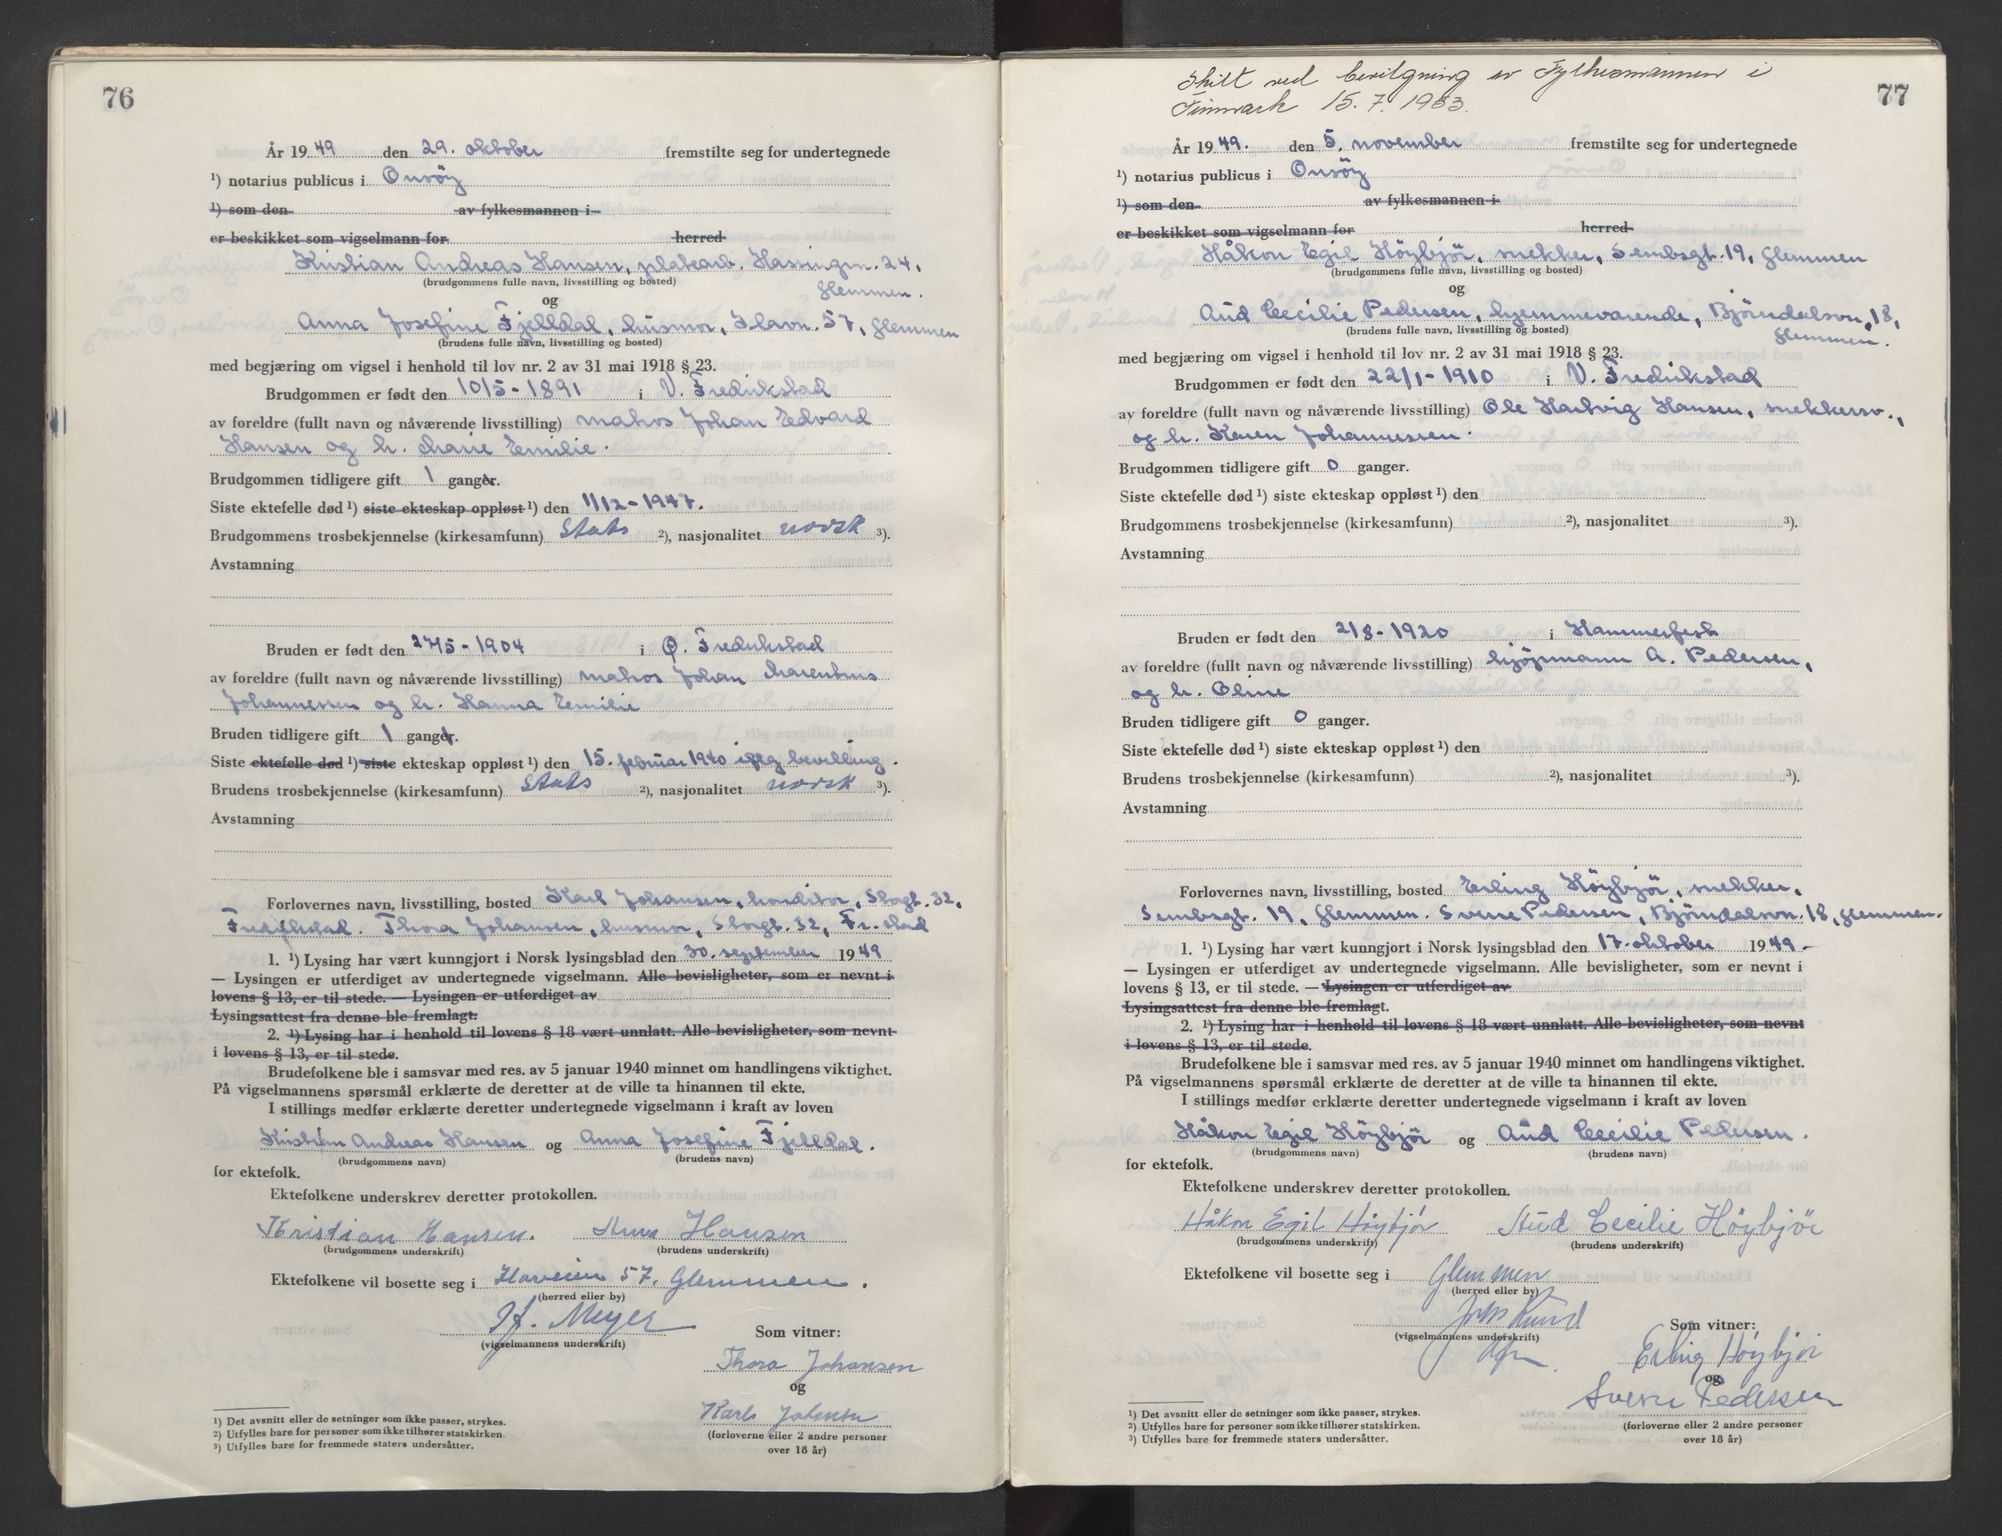 76
År 19 49 den 29. oktober fremstilte seg for undertegnede
¹) notarius publicus i Onsöy
¹) som den av fylkesmannen i
er beskikket som vigselmann for herred
Kristian Andreas Hansen, platearb. Hassingvn. 24,
(brudgommens fulle navn, livsstilling og bosted) Glemmen.
og
Anna Josefine Fjelldal, husmor, Ilavn. 57, Glemmen
(brudens fulle navn, livsstilling og bosted)
med begjæring om vigsel i henhold til lov nr. 2 av 31 mai 1918 § 23.
Brudgommen er født den 10/5 - 1891 i V. Fredrikstad
av foreldre (fullt navn og nåværende livsstilling) matros Johan Edvard
Hansen og h. Marie Emilie.
Brudgommen tidligere gift 1 ganger.
Siste ektefelle død ¹) siste ekteskap oppløst ¹) den 1/12 - 1947.
Brudgommens trosbekjennelse (kirkesamfunn) Stats ²), nasjonalitet norsk ³).
Avstamning
Bruden er født den 27/5 - 1904 i Ø. Fredrikstad
av foreldre (fullt navn og nåværende livsstilling) matros Johan Marentius
Johannessen og h. Hanna Emilie
Bruden tidligere gift 1 ganger.
Siste ektefelle død ¹) siste ekteskap oppløst ¹) den 15. februar 1940 ifølg bevilling.
Brudens trosbekjennelse (kirkesamfunn) Stats ²), nasjonalitet norsk ³).
Avstamning
Forlovernes navn, livsstilling, bosted Karl Johansen, konditor, Storgt. 32,
Fredrikstad. Thora Johansen, husmor, Storgt. 32, Fr.stad
1. ¹) Lysing har vært kunngjort i Norsk lysingsblad den 30. september 1949
— Lysingen er utferdiget av undertegnede vigselmann. Alle bevisligheter, som er nevnt i
lovens § 13, er til stede. — Lysingen er utferdiget av
Lysingsattest fra denne ble fremlagt.
2. ¹) Lysing har i henhold til lovens § 18 vært unnlatt. Alle bevisligheter, som nevnt
i lovens § 13, er til stede.
Brudefolkene ble i samsvar med res. av 5 januar 1940 minnet om handlingens viktighet.
På vigselmannens spørsmål erklærte de deretter at de ville ta hinannen til ekte.
I stillings medfør erklærte deretter undertegnede vigselmann i kraft av loven
Kristian Andreas Hansen og Anna Josefine Fjelldal.
(brudgommens navn) (brudens navn)
for ektefolk.
Ektefolkene underskrev deretter protokollen.
Kristian Hansen. Anna Hansen
(brudgommens underskrift) (brudens underskrift)
Ektefolkene vil bosette seg i Ilaveien 57. Glemmen.
(herred eller by)
Meyer
(vigselmannens underskrift) Som vitner:
Thora Johansen
og
Karls Johnsen
(forloverne eller 2 andre personer
over 18 år)
¹) Det avsnitt eller de setninger som ikke passer, strykes.
²) Utfylles bare for personer som ikke tilhører statskirken.
³) Utfylles bare for fremmede staters undersåtter.
77
Skilt ved bevilgning av Fylkesmannen i
Finnmark 15. 7. 1953.
År 19 49. den 5. november fremstilte seg for undertegnede
¹) notarius publicus i Onsöy
¹) som den av fylkesmannen i
er beskikket som vigselmann for herred
Håkon Egil Höybjör, snekker, Sembsgt. 19, Glemmen
(brudgommens fulle navn, livsstilling og bosted)
og
Aud Cecilie Pedersen, hjemmeværende, Björndalsvn. 18,
(brudens fulle navn, livsstilling og bosted) Glemmen.
med begjæring om vigsel i henhold til lov nr. 2 av 31 mai 1918 § 23.
Brudgommen er født den 22/1 - 1910 i V. Fredrikstad
av foreldre (fullt navn og nåværende livsstilling) Ole Hartvig Hansen, snekkersv.,
og h. Karen Johannessen.
Brudgommen tidligere gift 0 ganger.
Siste ektefelle død ¹) siste ekteskap oppløst ¹) den
Brudgommens trosbekjennelse (kirkesamfunn) ²), nasjonalitet ³).
Avstamning
Bruden er født den 2/8 - 1920 i Hammerfest
av foreldre (fullt navn og nåværende livsstilling) kjöpmann A. Pedersen,
og h. Oline
Bruden tidligere gift 0 ganger.
Siste ektefelle død ¹) siste ekteskap oppløst ¹) den
Brudens trosbekjennelse (kirkesamfunn) ²), nasjonalitet ³).
Avstamning
Forlovernes navn, livsstilling, bosted Erling Höybjör, snekker,
Sembsgt. 19, Glemmen. Sverre Pedersen, Björndalsvn. 18, Glemmen.
1. ¹) Lysing har vært kunngjort i Norsk lysingsblad den 17. oktober 1949.-
— Lysingen er utferdiget av undertegnede vigselmann. Alle bevisligheter, som er nevnt i
lovens § 13, er til stede. — Lysingen er utferdiget av
Lysingsattest fra denne ble fremlagt.
2. ¹) Lysing har i henhold til lovens § 18 vært unnlatt. Alle bevisligheter, som nevnt
i lovens § 13, er til stede.
Brudefolkene ble i samsvar med res. av 5 januar 1940 minnet om handlingens viktighet.
På vigselmannens spørsmål erklærte de deretter at de ville ta hinannen til ekte.
I stillings medfør erklærte deretter undertegnede vigselmann i kraft av loven
Håkon Egil Höybjör og Aud Cecilie Pedersen.
(brudgommens navn) (brudens navn)
for ektefolk.
Ektefolkene underskrev deretter protokollen.
Håkon Egil Höybjör Aud Cecilie Höybjör
(brudgommens underskrift) (brudens underskrift)
Ektefolkene vil bosette seg i Glemmen
(herred eller by)
(vigselmannens underskrift) Som vitner:
Erling Höybjör
og
Sverre Pedersen
(forloverne eller 2 andre personer
over 18 år)
¹) Det avsnitt eller de setninger som ikke passer, strykes.
²) Utfylles bare for personer som ikke tilhører statskirken.
³) Utfylles bare for fremmede staters undersåtter.